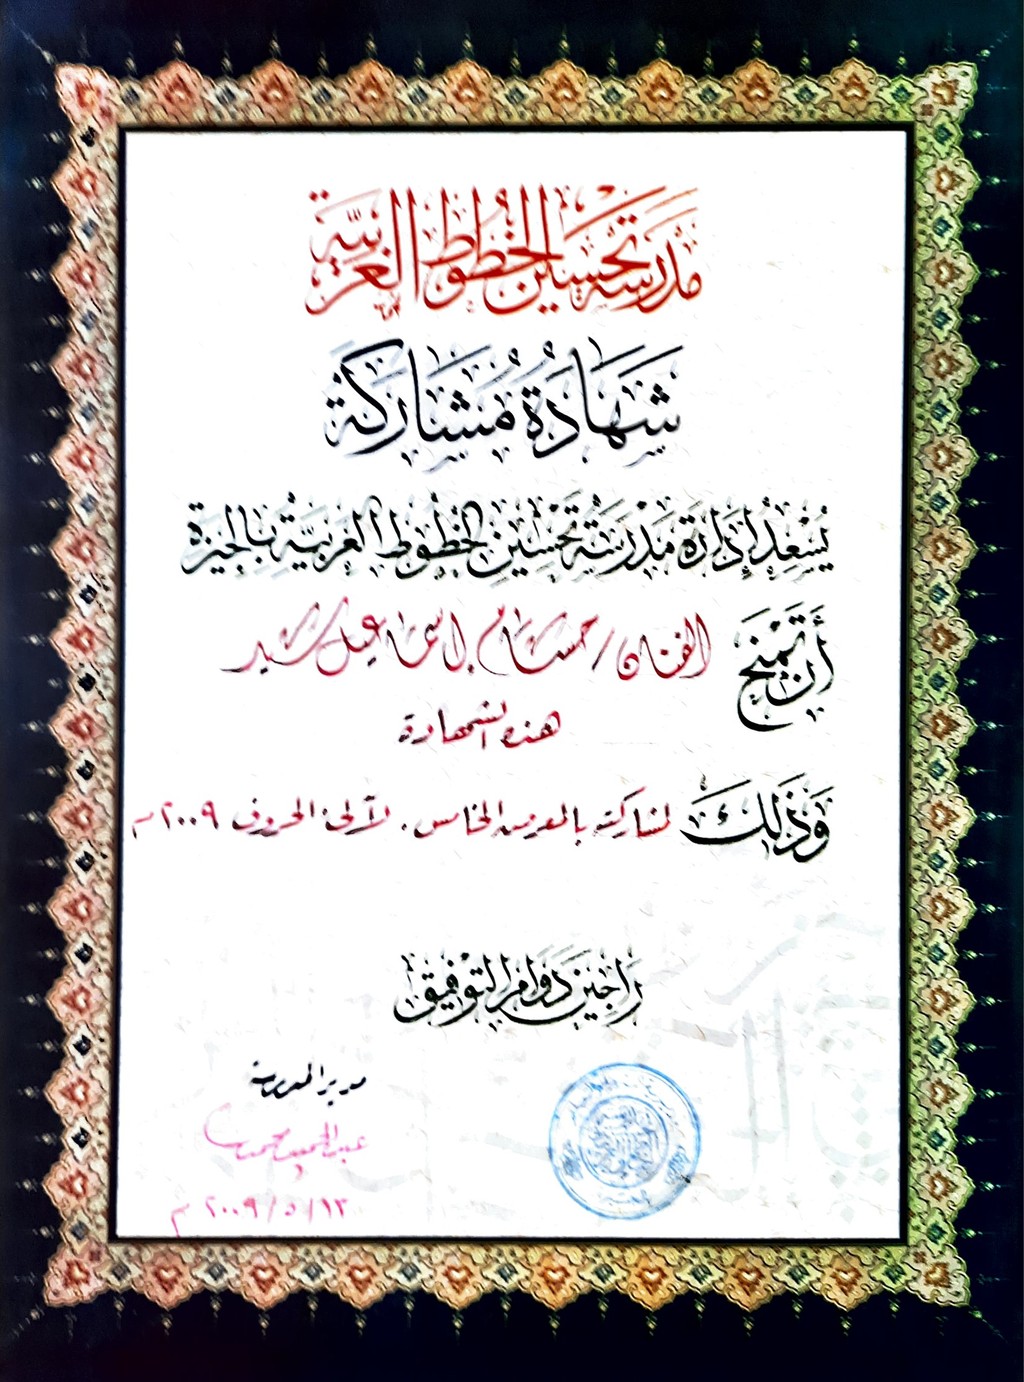 مدرسة تحسين الخطوط العربية
شَهَادَةُ مُشَارَكَةٍ
يُسْعِدُ إِدَارَةَ مَدْرَسَةِ تَحْسِينِ الخُطُوطِ العَرَبِيَّةِ بِالجِيزَةِ
أَن تَمْنَحَ الفنان / حسام إسماعيل سيد
هذه الشهادة
وَذَلِكَ لمشاركته بالمعرض الخامس . لآلئ الحروف ٢٠٠٩م
رَاجِينَ دَوَامَ التَّوْفِيقِ
مدير المدرسة
عبد الحميد محمد
١٣ / ٥ / ٢٠٠٩ م